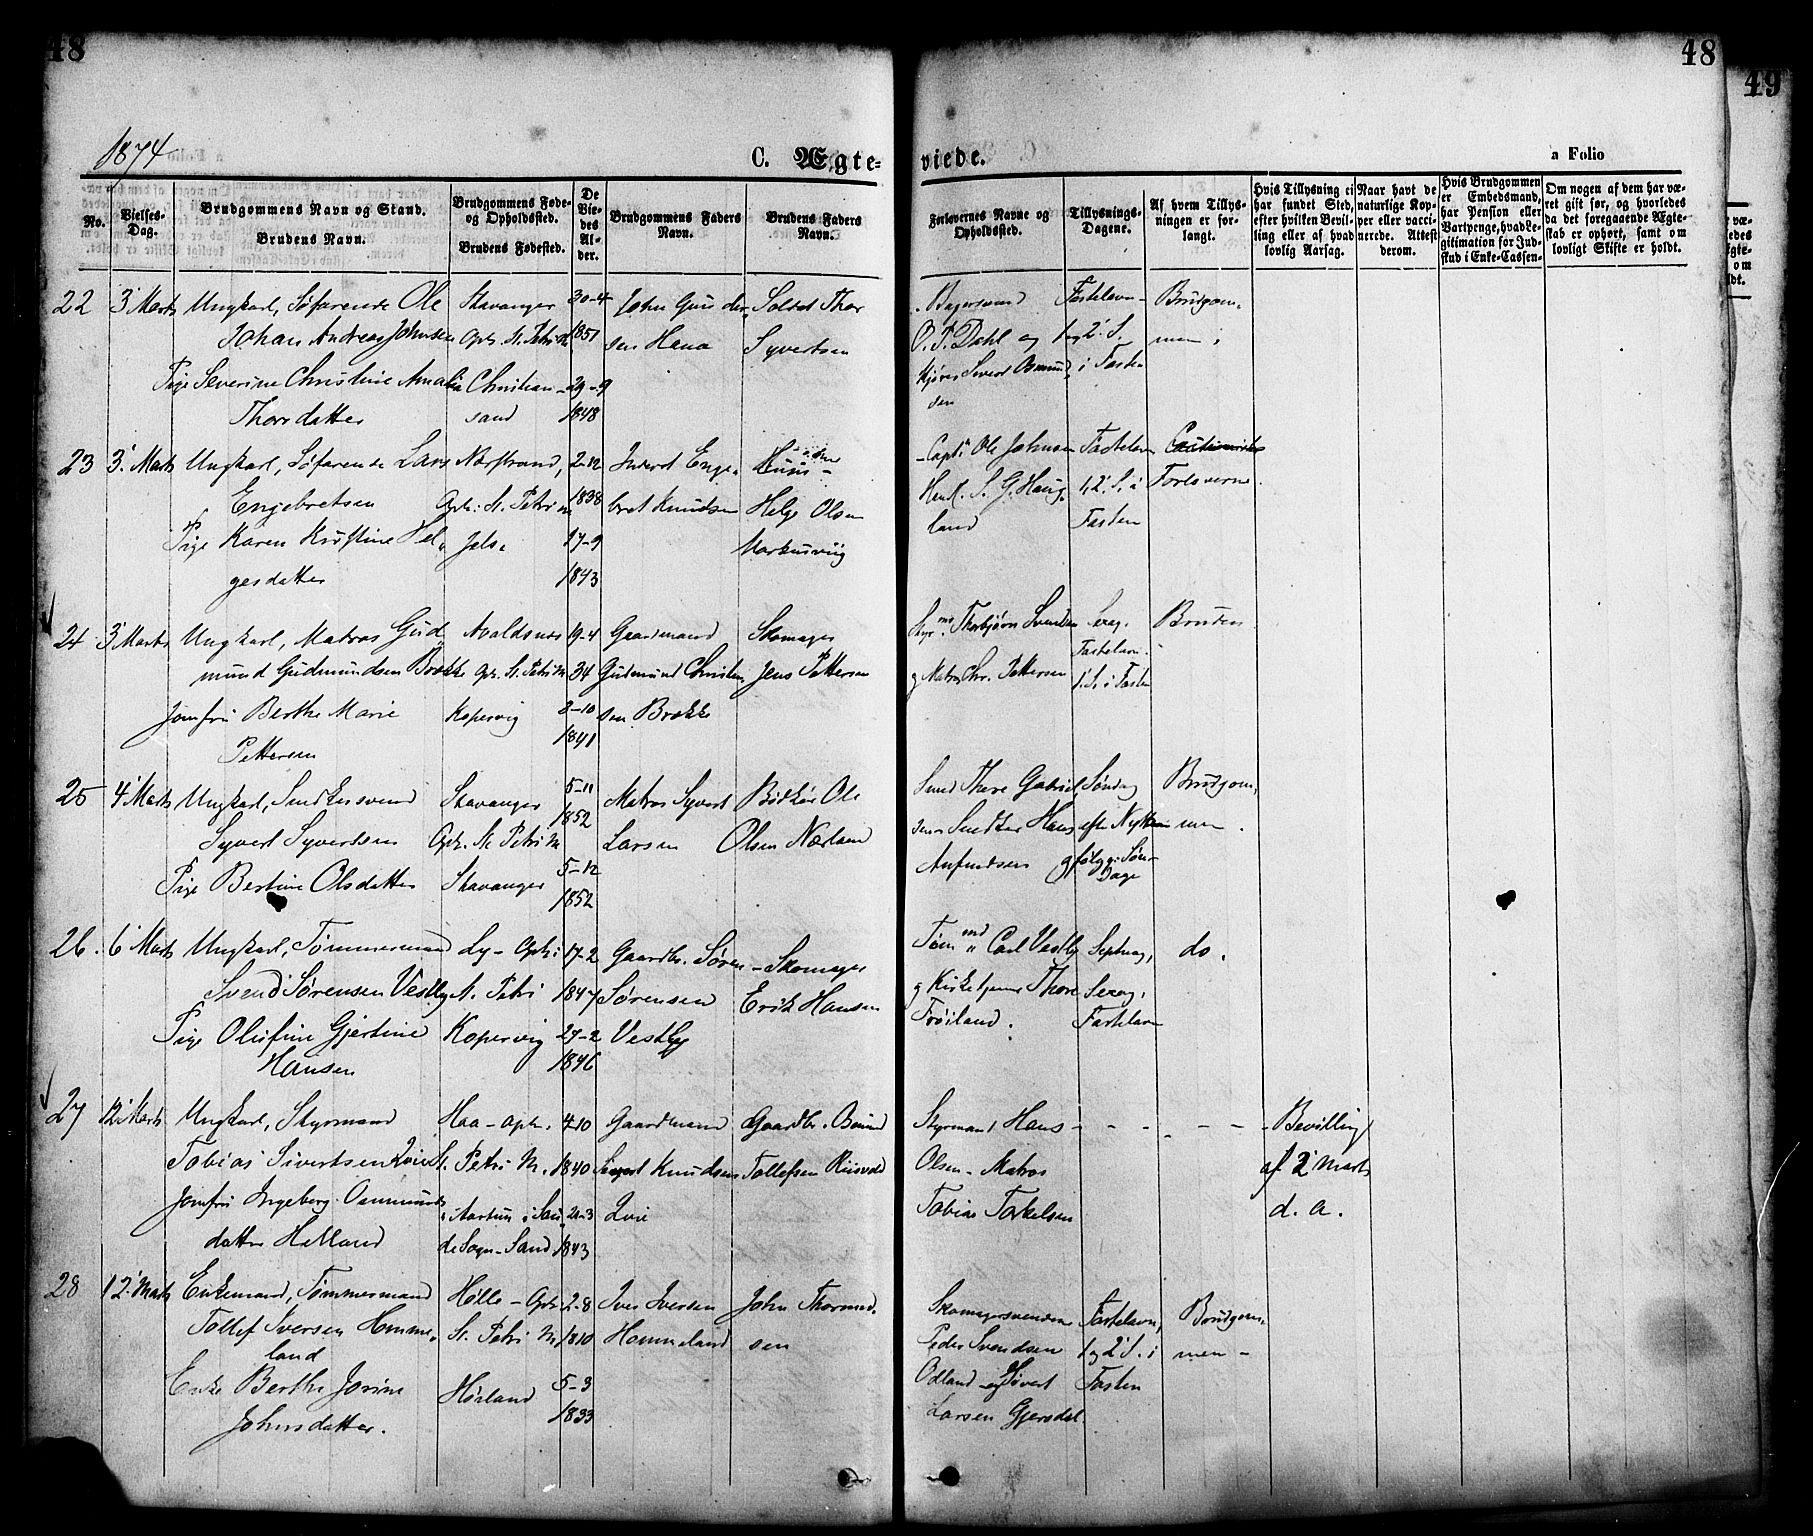 48
48
49
1874
C. Ægte-
viede.
a Folio
No.
Vielses-Dag.
Brudgommens Navn og Stand.
Brudens Navn.
Brudgommens Føde- og Opholdssted.
Brudens Fødested.
De Viedes Alder.
Brudgommens Faders Navn.
Brudens Faders Navn.
Forlovernes Navne og Opholdssted.
Tillysnings-Dagene.
Af hvem Tillysningen er forlangt.
Hvis Tillysning ei har fundet Sted, efter hvilken Bevilling eller af hvad lovlig Aarsag.
Naar havt de naturlige Kopper eller vaccinerede. Attest derom.
Hvis Brudgommen er Embedsmand, har Pension eller Vartpenge, hvad Legitimation for Indskud i Enke-Cassen
Om nogen af dem har været gift før, og hvorledes da det foregaaende Ægteskab er ophørt, samt om lovligt Skifte er holdt.
22
3' Marts
Ungkarl, Søfarende Ole
Johan Andreas Johnsen
Pige Severine Christine Amalia
Thorsdatter
Stavanger
Oph. St. Petri M
Christian-
sand
30-4
1851
29-9
1848
John Gunder-
sen Hana
Soldat Thor
Syvertsen
Bagersvend
O. P. Dahl og
Sivert Osmund-
sen
Fastelavn-
1 og 2' S.
i Fasten
Brudgom-
men
23
3' Marts
Ungkarl, Søfarende Lars
Engebretsen
Pige Karen Kristine Hel-
gesdatter
Nerstrand,
Oph: St. Petri M
Jelse
2-12
1838
17-9
1843
Enge-
bret Knudsen
Huus-
Helge Olsen
Markusviig
Capt: Ole Johnsen
S. G. Haug-
land
Fastelavn
1, 2' S. i
Fasten
Forloverne
24
3' Marts
Ungkarl, Matros Gud-
mund Gudmundsen Brekke
Jomfru Berthe Marie
Pettersen
Avaldsnes
Oph. St. Petri M
Kopervig
19-4
34
8-10
1841
Gaardmand
Gudmund Christen-
sen Brekke
Skomager
Jens Pettersen
Styrmd. Thorbjørn Svendsen
og Matros Chr. Pettersen
Sexag.
Fastelavn.
1' S. i Fasten
Bruden
25
4' Marts
Ungkarl, Snedkersvend
Syvert Syvertsen
Pige Bertine Olsdatter
Stavanger
Oph. St. Petri M
Stavanger
5-11
1852
5-12
1852
Matros Syvert
Larsen
Bødker Ole
Olsen Nærland
Smed Thore Gabriel-
sen Snedker Hans
Anfindsen
Søndag
efter Nytaar
og følg: Søn-
Dage
Brudgom-
men
26.
6' Marts
Ungkarl, Tømmermand
Svend Sørensen Vestly
Pige Olufine Gjertine
Hansen
Ly- Oph:
St. Petri
Kopervig
17-2
1847
27-2
1846
Gaardbr. Søren
Sørensen
Vestly
Skomager
Erik Hansen
Tømmd Carl Vestly
og Kirketjener Thore
Trøiland.
Septuag,
Sexag,
Fastelavn
do.
27
12' Marts
Ungkarl, Styrmand
Tobias Sivertsen Qvie
Jomfru Ingeborg Osmunds-
datter Helland
Haa- Oph.
St. Petri M.
Aartun i Sau-
de Sogn- Sand
4-10
1840
21-3
1843
Gaardmand
Sivert Knudsen
Qvie
Gaardbr.
Tollefsen
Styrmand Hans
Olsen- Matros
Tobias Torkelsen
- - - - -
Bevilling
af 2' Marts
d. a.
28
12' Marts
Enkemand, Tømmermand
Tollef Iversen Homme-
land
Enke Berthe Jorine
Johnsdatter.
Hølle- Oph:
St. Petri M
Høiland
2-8
1810
5-3
1833
Iver Iversen
Hommeland
John Thormod-
sen
Skomagersvendene
Peder Svendsen
Odland og Sivert
Larsen Gjersdal
Fastelavn,
1 og 2' S. i
Fasten
Brudgom-
men